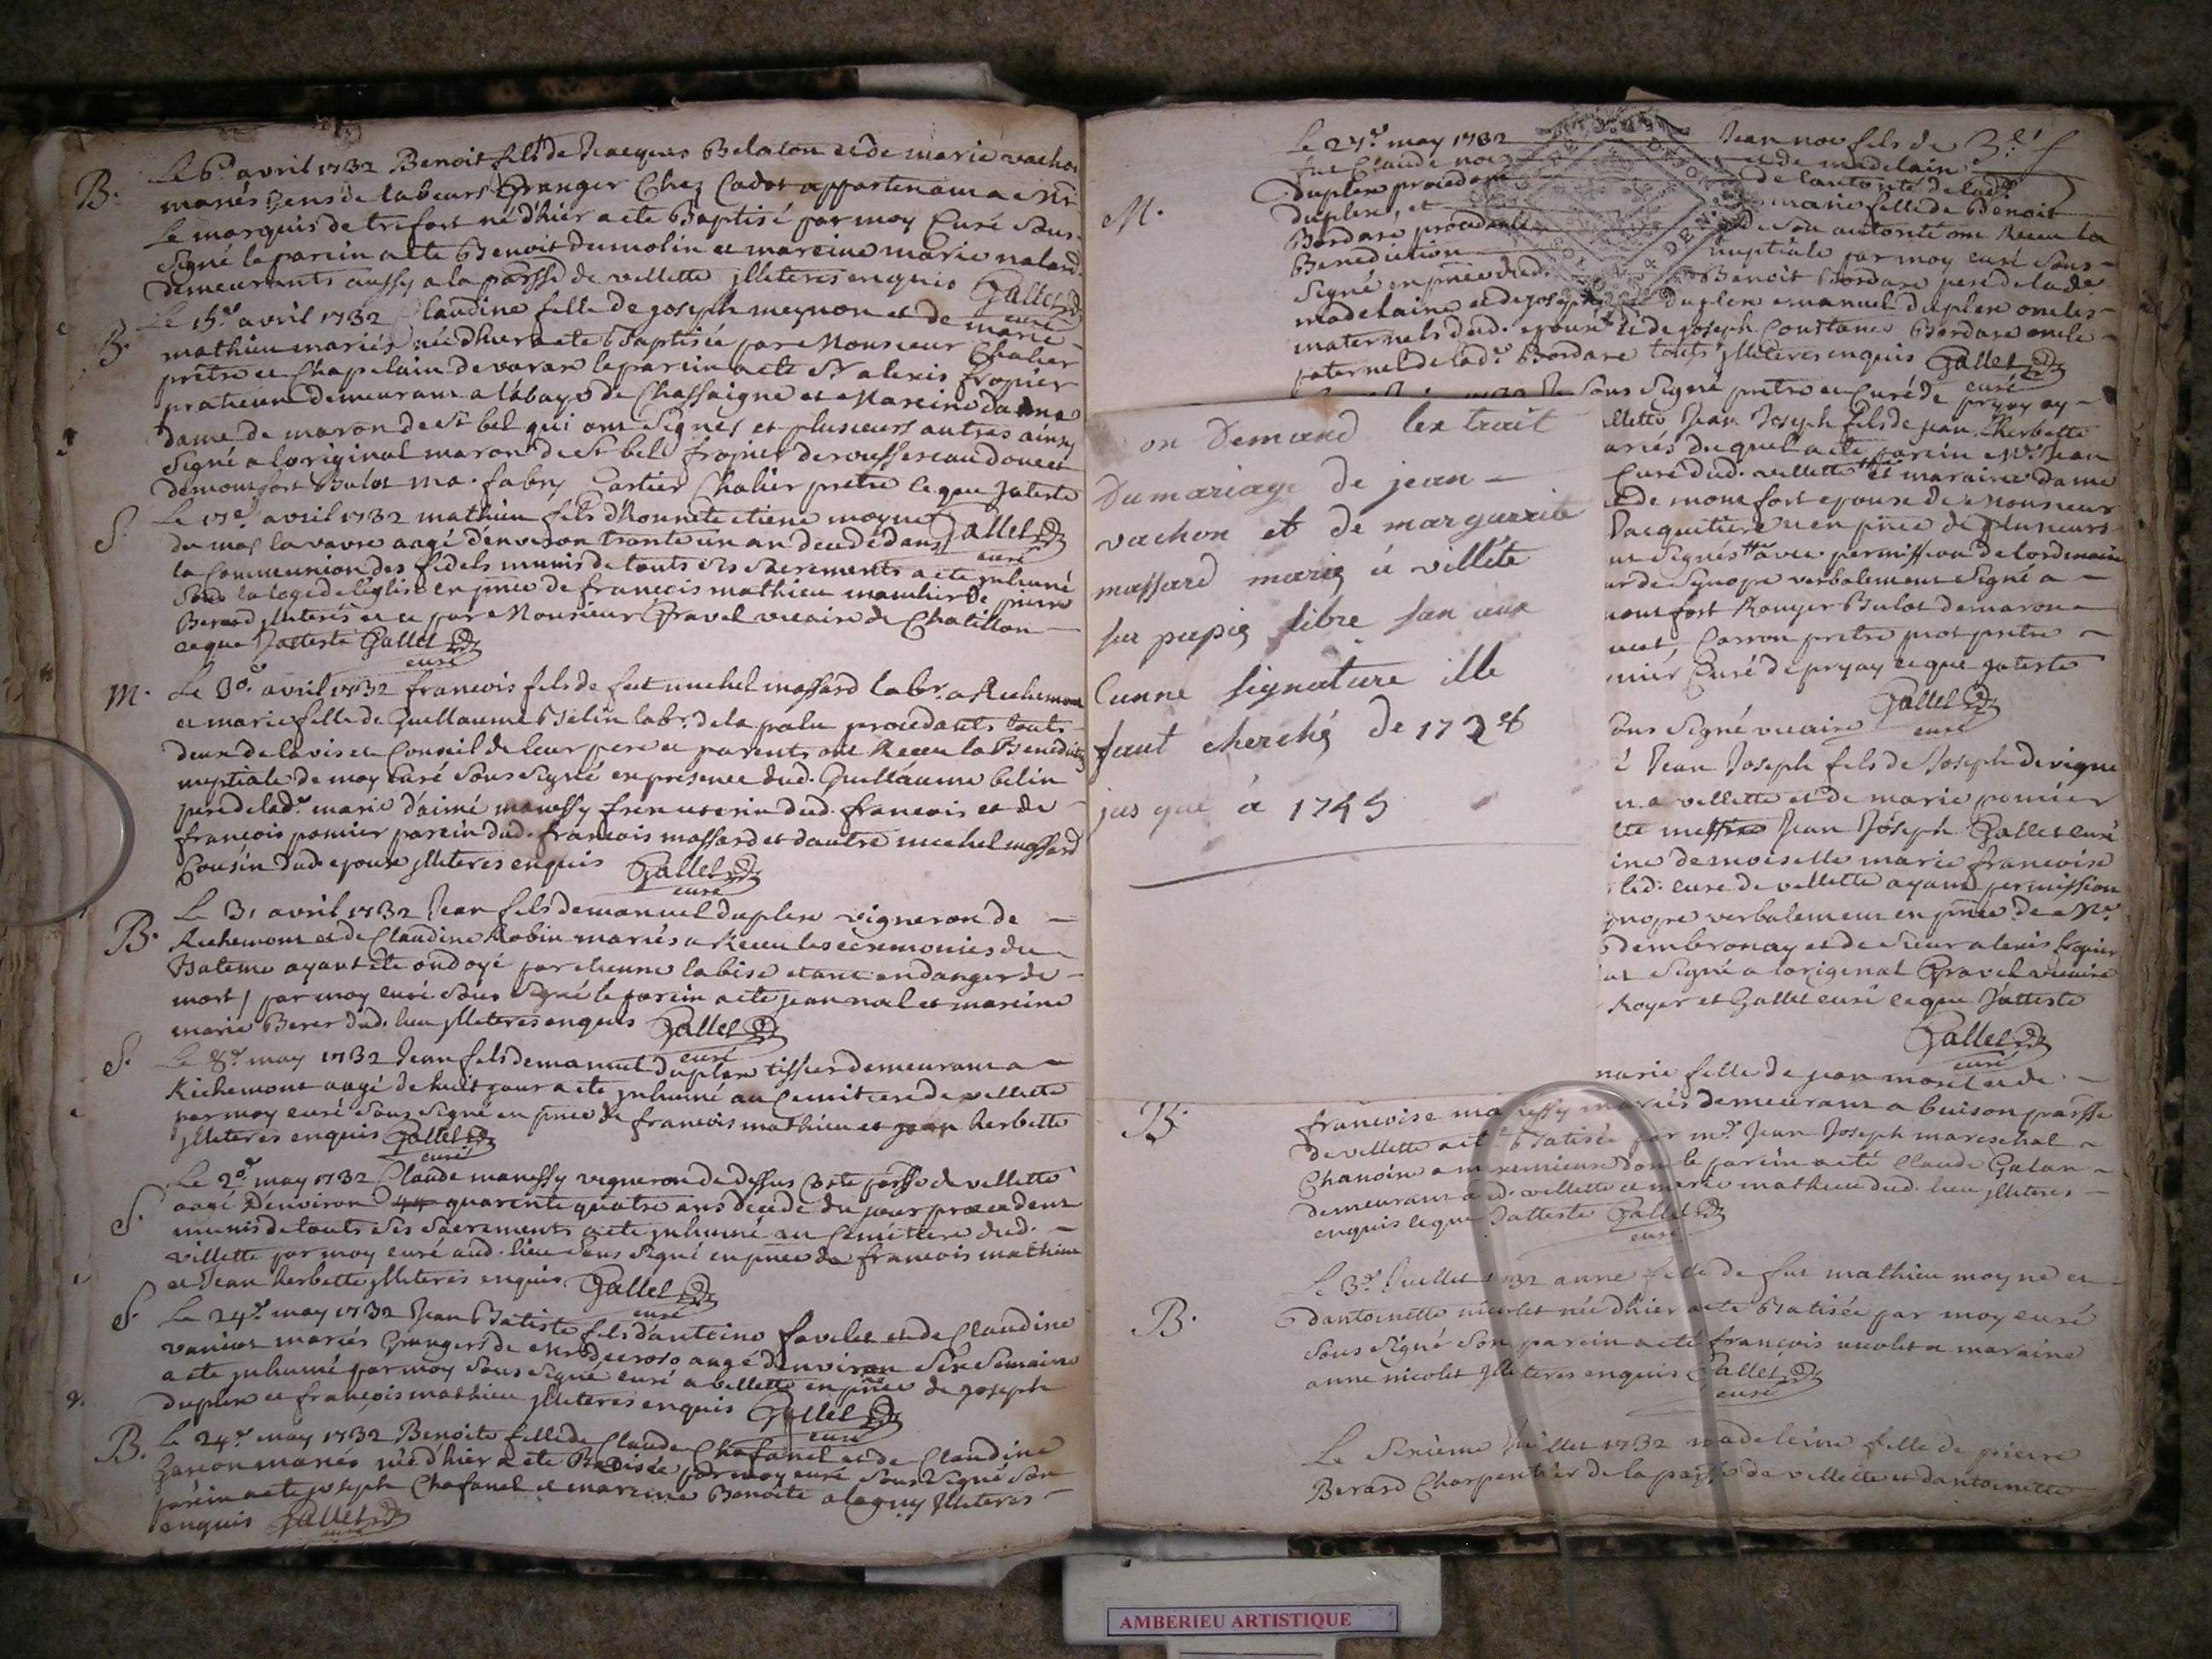 B.
Le 6e avril 1732 Benoit fils de Jacques Belaton et de marie vachon
mariés gens de labeurs Granger Chez Cadot appartenant a Mr
Le marquis de trefort né d'hier a ete Baptisé par moy Curé sous
signé le parein a ete Benoit dumolin et mareine marie naland
demeurants aussy a la parsse de vellette illeteres enquis Gallet
curé
B.
Le 15e avril 1732 Claudine fille de joseph meynon et de marie
mathieu mariés née d'hier a ete Baptisée par Monsieur Chalier
prêtre et Chapelain de varax le parein a ete Sr alexis fropier
praticien demeurant a l'abaye de Chassaigne et Mareine
dame de maron de St bel qui ont signés et plusieurs autres ainsy
signé a loriginal maron de St bel fropier
demontfort Bulot ma. fabry Cartier Chalier prêtre ce que J'ateste
S.
Le 17e avril 1732 mathieu fils d'honnete etiene moyne Gallet
du mas la vavre aagé d'environ trante un an decedé dans curé
la Communion des fidels munis de touts ses sacrements a ete inhumé
sous la loge de l'eglise en pnce de francois mathieu pierre
Berard illeterés et ce par Monsieur Gravel vicaire de Chatillon
ce que J'atteste Gallet
curé
M.
Le 30e avril 1732 francois fils de feu michel massard labr. a Richemont
et marie fille de Guillaume Belin labr. de la palu procedants touts
deux de lavis et Conseil de leur pere et parents ont Receu la Benediction
nuptiale de moy Curé sous signé en presence dud. Guillaume belin
pere de lade marie d'aimé manessy frere uterin dud. francois et de
francois pomier parein dud. francois massard et dautre michel massard
Cousin dud. epoux illeteres enquis Gallet
curé
B.
Le 31 avril 1732 Jean fils demanuel duplex vigneron de
Richemont et de Claudine Robin mariés a Receu les ceremonies du
Bateme ayant ete ondoyé par etienne labise etant en danger de
mort / par moy curé sous signé le parein a ete jean nal et mareine
marie Berer dud. lieu illeteres enquis Gallet
curé
S.
Le 8e may 1732 Jean fils demanuel duplex tissier demeurant a
Richemont aagé de huit jour a ete inhumé au Cemitiere de vellette
par moy curé sous signé en pnce de francois mathieu et jean herbette
illeteres enquis Gallet
curé
S.
Le 20e may 1732 Claude manessy vigneron de dessus Coste parsse de vellette
aagé d'environ 44 quarente quatre ans decede du jour precedent
munis de touts ses sacrements a ete inhumé au Cemitiere dud.
villette par moy curé aud. lieu sous signé en pnce de francois mathieu
et Jean herbette illeteres enquis Gallet
curé
S.
Le 24e may 1732 Jean Batiste fils d'antoine favelet et de Claudine
mariés Grangers de aagé d'environ six semaine
a ete inhumé par moy sous signé curé a vellette en pnce de joseph
duplex et françois mathieu illeteres enquis Gallet
curé
B.
Le 24e may 1732 Benoite fille de Claude Chafanel et de Claudine
Garcon mariés née d'hier a ete Batisée par moy curé sous signé son
parein a ete joseph Chafanel et mareine Benoite alagny illeteres
enquis Gallet
curé
M.
Le 27e may 1732 Jean noe fils de
feu Claude noe et de madelaine
duplex procedant de lautorité de lade
duplex, et marie fille de Benoit
Bordare procedante de son autorité ont Receu la
Benediction nuptiale par moy curé sous
signé en pnce dud. Benoit Bordare pere de lade
madelaine et de joseph duplex emanuel duplex oncles
maternels dud. epoux et de joseph Constance Bordare oncle
paternel de lade Bordare touts illeteres enquis Gallet
curé
sous signé pretre et Curé de pryay ay
illette Jean Joseph fils de jean herbette
ariés duquel a ete parein Mre Jean
Curé dud. vellette et maraine dame
de mont fort epouse de Monsieur
Jacquetiere en pnce de plusieurs
nt signés avec permission de lordinaire
ur de Synope verbalement signé a
mont fort Rouyer Bulot demaron
uet, Carron pretre prot pretre
mier Curé de pryay ce que j'ateste
Gallet
curé
on Demand lextrait
Du mariage de jean
vachon et de margurite
massard mariez à villéte
sur papiez libre san aux
Cunne signature ille
faut cherché de 1728
jus que à 1745
ous signé vicaire
é Jean Joseph fils de Joseph devigne
n a vellette et de marie pomier
ete messire Jean Joseph Gallet curé
ine demoiselle marie francoise
led. curé de vellette ayant permission
ynope verbalement en pnce de Mre
dembronay et de sieur alexis fropier
nt signé a loriginal Gravel vicaire
Royer et Gallet curé ce que J'atteste
Gallet
curé
B.
marie fille de jean morel et de
francoise manessy mariés demeurant a buison parsse
de vellette a ete Batisée par mre Jean Joseph mareschal
Chanoine a meximieux dont le parein a eté Claude Galan
demeurant a d. vellette et marie mathieu dud. lieu illeteres
enquis ce que J'atteste Gallet
curé
B.
Le 3e Juillet 1732 anne fille de feu mathieu moyne et
dantoinette nicolet née d'hier a ete Batisée par moy curé
sous signé son parein a eté françois nicolet et maraine
anne nicolet illeteres enquis Gallet
curé
Le sixieme Juillet 1732 madeleine fille de pierre
Berard Charpentier de la parsse de vellette et dantoinette
AMBERIEU ARTISTIQUE